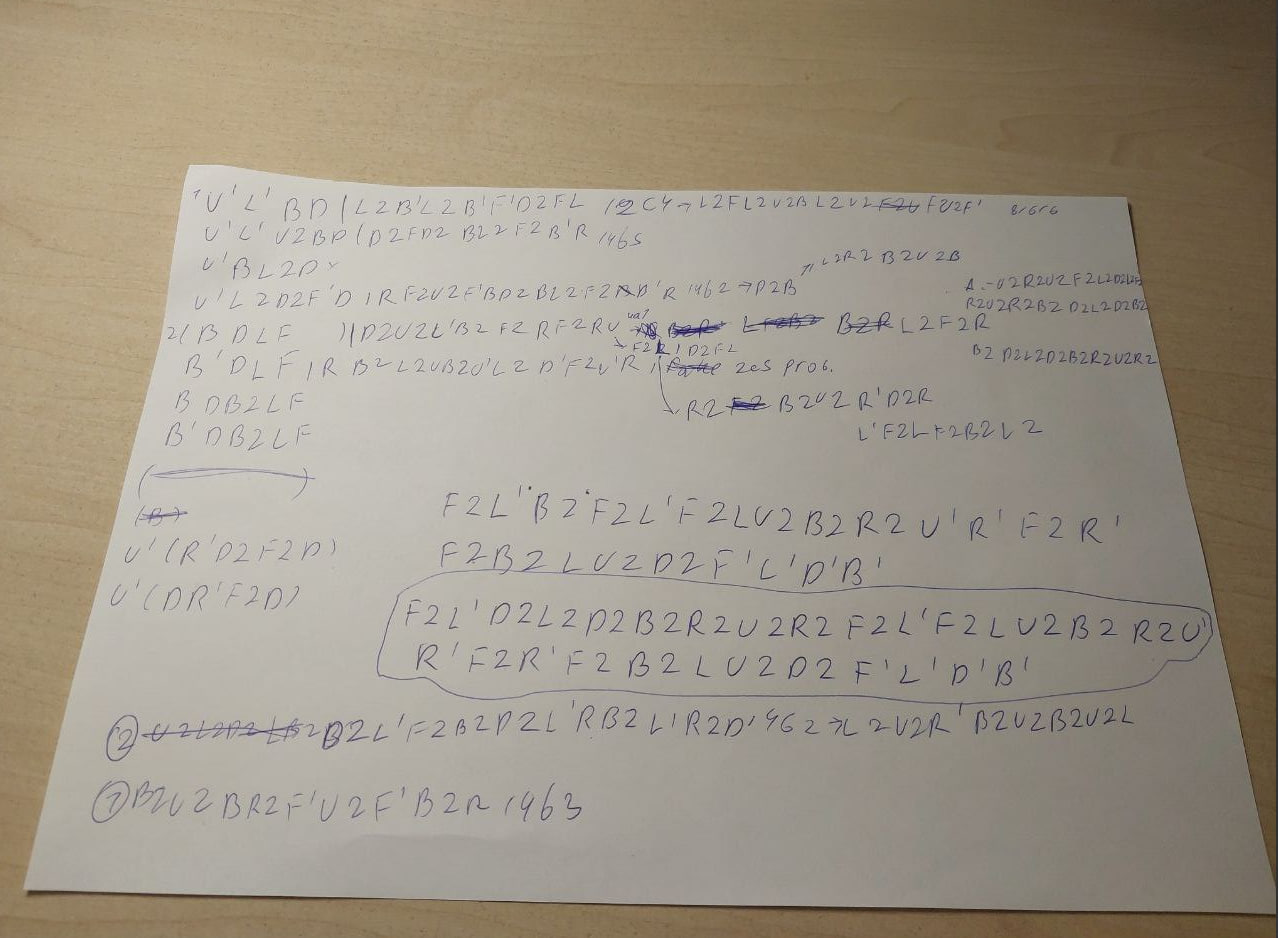 U' L' B D | L2 B' L2 B' F' D2 F L 12 C4 → L2 F L2 U2 B L2 U2 F2U F U2 F'
U' L' U2 B D ( D2 F D2 B L2 F2 B' R
U' B L2 D
U' L2 D2 F' D | R F2 U2 F' B D2 B L2 F2 D' R 1462 → D2 B
L2 R2 B2 U2 B
A - U2 R2 U2 F2 L2 D2 L2 F2
R2 U2 R2 B2 D2 L2 D2 B2
B2 D2 L2 D2 B2 R2 U2 R2
2( B D L F ) | D2 U2 L' B2 F2 R F2 R U B2R L F2B2 B2R L2 F2 R
→ F2 L' D2 F2
B' D L F | R B2 L2 U B2 U' L2 D' F2 U' R | zes prob.
B D B2 L F
→ R2 F2 B2 U2 R' D2 R
B' D B2 L F
L' F2 L F2 B2 L2
( )
(B)
U' ( R' D2 F2 D )
U' ( D R' F2 D )
F2 L' B2 F2 L' F2 L U2 B2 R2 U' R' F2 R'
F2 B2 L U2 D2 F' L' D' B'
F2 L' D2 L2 D2 B2 R2 U2 R2 F2 L' F2 L U2 B2 R2 U'
R' F2 R' F2 B2 L U2 D2 F' L' D' B'
② U2L2D2LB2 B2 L' F2 B2 D2 L' R B2 L' R2 D' 462 → L2 U2 R' B2 U2 B2 U2 L
① B2 U2 B R2 F' U2 F' B2 R 1463